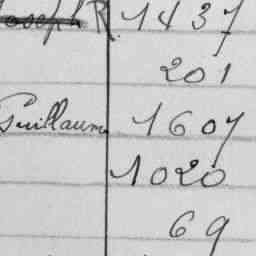 Joseph R. 1437
201
Guillaum 1607
1020
69